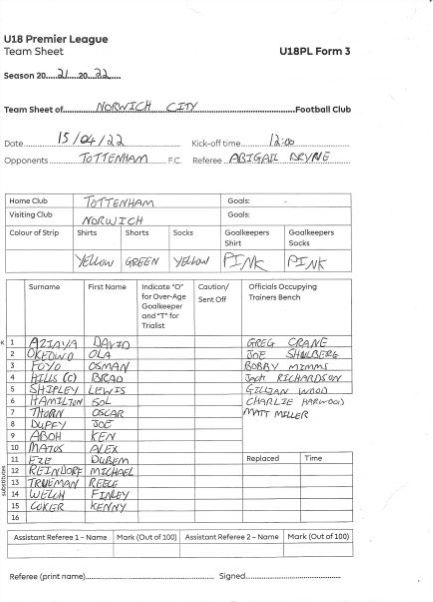 U18 Premier League
Team Sheet U18PL Form 3
Season 20 21 20 22
Team Sheet of NORWICH CITY Football Club
Date 15/04/22 Kick-off time 12:00
Opponents TOTTENHAM F.C. Referee ABIGAIL BYRNE
Home Club TOTTENHAM Goals: -
Visiting Club NORWICH Goals:
Colour of Strip Shirts Shorts Socks Goalkeepers Shirt Goalkeepers Socks
YELLOW GREEN YELLOW PINK PINK
Surname First Name Indicate "O" for Over-Age Goalkeeper and "T" for Trialist Caution/ Sent Off Officials Occupying Trainers Bench
K 1 AZIAYA DAVID GREG CRANE
2 OKEOWO OLA JOE SHULBERG
3 FOYO OSMAN BOBBY MIMMS
4 HILLS (C) BRAD Jack RICHARDSON
5 SHIPLEY LEWIS GILLIAN WOOD
6 HAMILTON SOL CHARLIE HARWOOD
7 THORN OSCAR MATT MILLER
8 DUFFY JOE
9 ABOH KEN
10 MATOS ALEX
11 EZE DUBEM Replaced Time
substitutes
12 REINDORF MICHAEL
13 TRUEMAN REECE
14 WELCH FINLEY
15 COKER KENNY
16
Assistant Referee 1 – Name Mark (Out of 100) Assistant Referee 2 – Name Mark (Out of 100)
Referee (print name) Signed